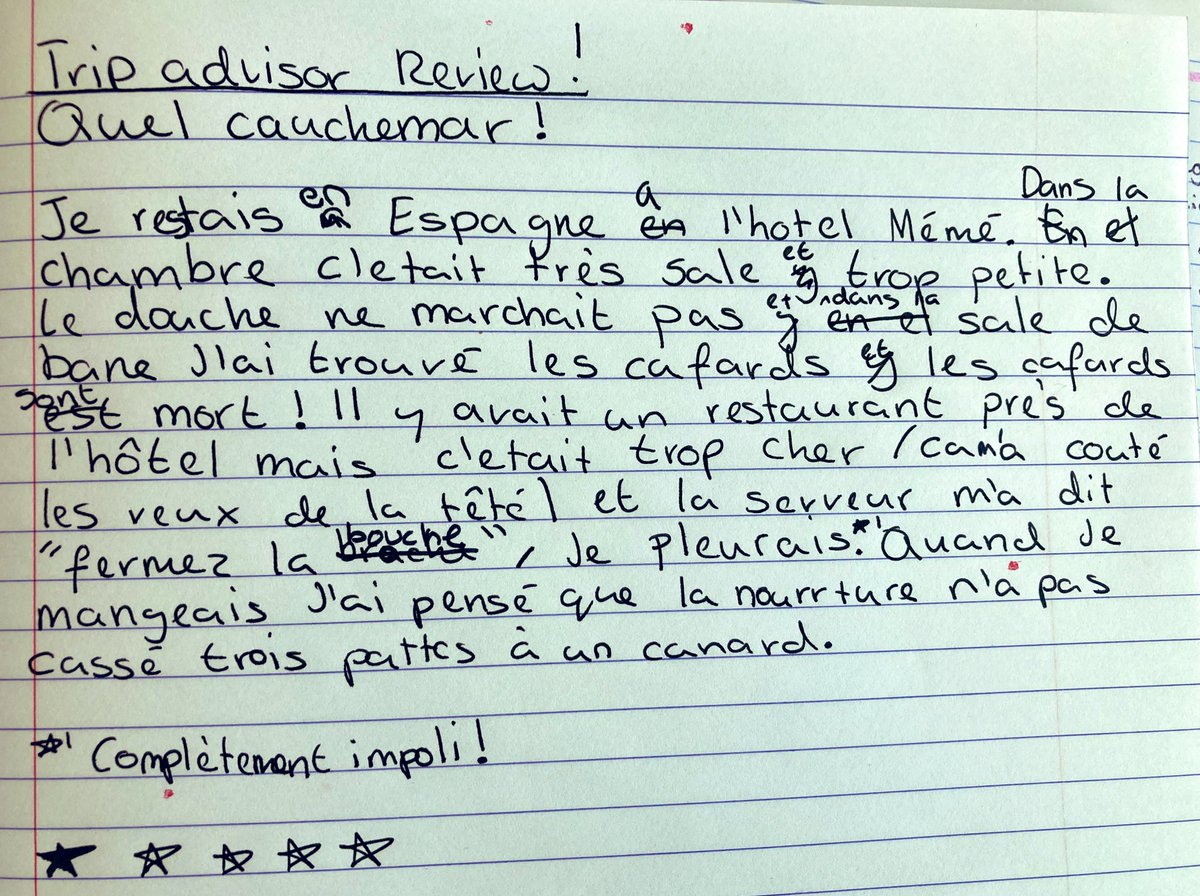 Trip advisor Review!
Quel cauchemar!
Je restais en Espagne a l'hotel Mémé. Dans la
chambre c'etait très sale et trop petite.
Le douche ne marchait pas et dans la sale de
bane J'ai trouvé les cafards et les cafards
sont mort! Il y avait un restaurant près de
l'hôtel mais c'etait trop cher (cam'a couté
les yeux de la têté) et la serveur m'a dit
"fermez la bouche", Je pleurais.*1 Quand Je
mangeais J'ai pensé que la nourrture n'a pas
cassé trois pattes à un canard.
*1 Complètement impoli!
★ ☆ ☆ ☆ ☆